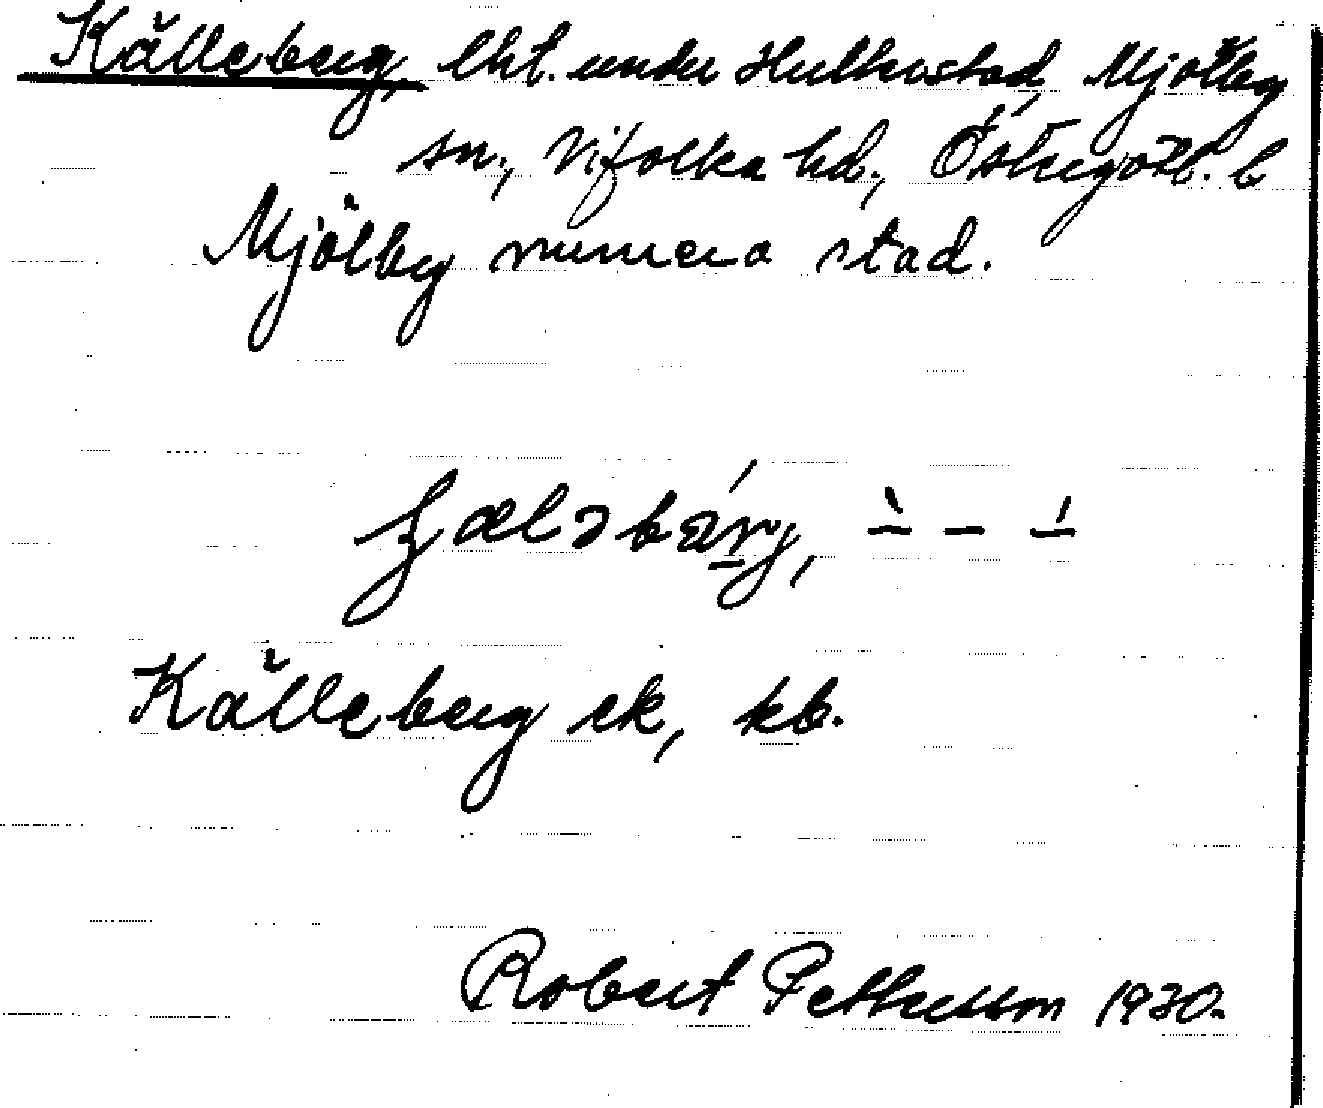 Källeberg, lht. under Hulterstad, Mjölby
sn., Vifolka hd., Östergötl. l
Mjölby numera stad.
Källeberg ek, kb.
Robert Pettersson 1930.